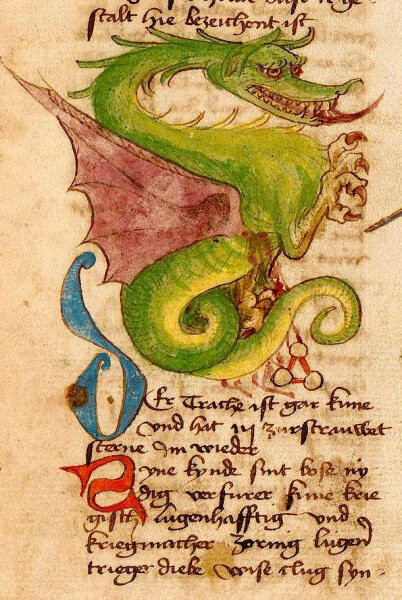 stalt hie bezeichent ist
Er Trache ist gar kune
vnd hat iij zurstrauwet
sterne Im wieder
Syne kynde sint bose ny
dig verfurer kune krie
gisch lugenhafftig vnd
kriegmacher zornig lugen
trieger diebe wise clug syn-